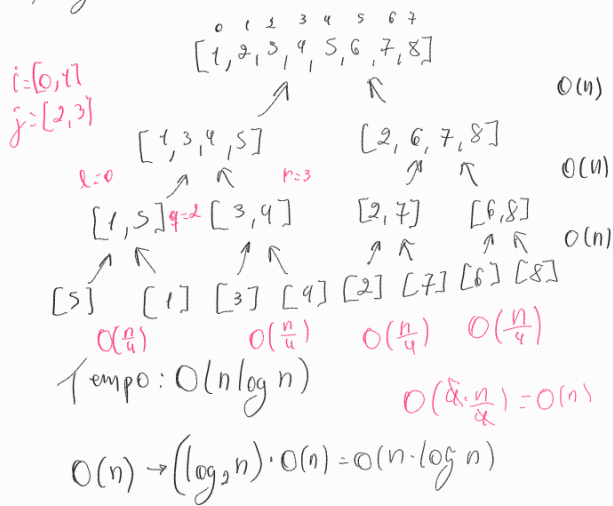 0 1 2 3 4 5 6 7
[1, 2, 3, 4, 5, 6, 7, 8]
i=[0,1]
j=[2,3]
O(n)
[1, 3, 4, 5] [2, 6, 7, 8]
O(n)
l=0 r=3
[1, 5] q=2 [3, 4] [2, 7] [6, 8]
O(n)
[5] [1] [3] [4] [2] [7] [6] [8]
O(n/4) O(n/4) O(n/4) O(n/4)
Tempo: O(n log n)
O(4·n/4)=O(n)
O(n) → (log₂n)·O(n)=O(n·log n)